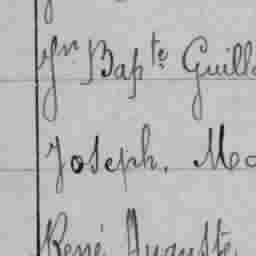 Jn Bapte Guill
Joseph. Me
René Auguste